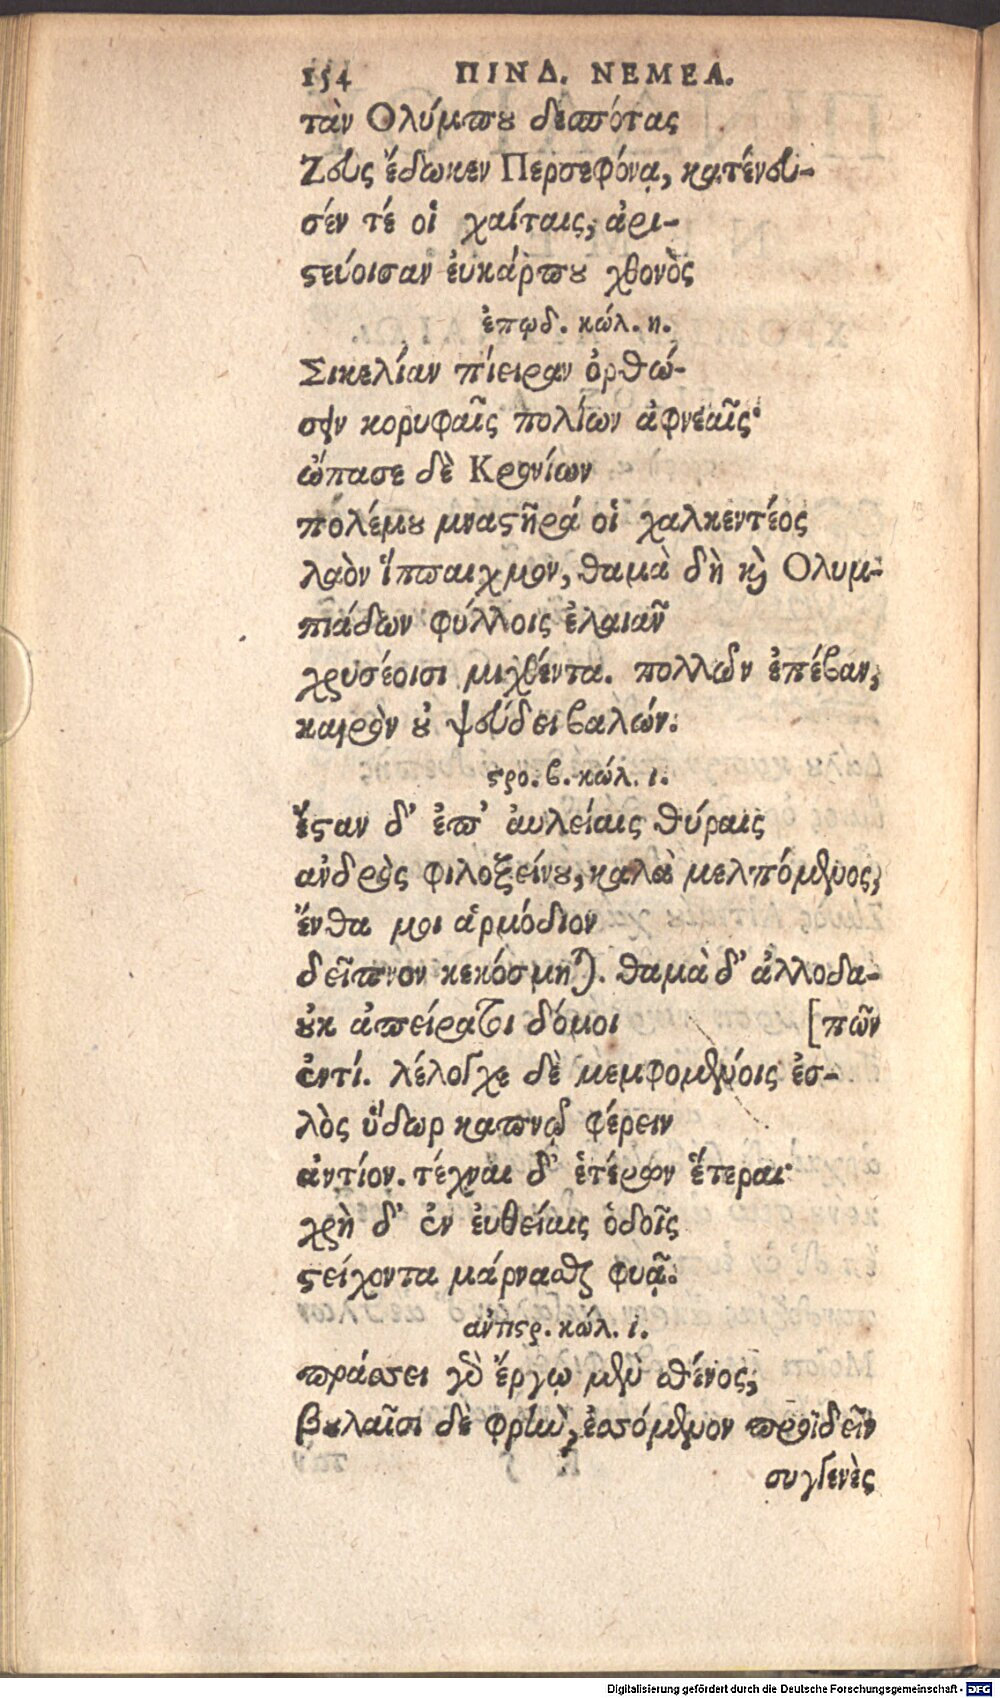 154 ΠΙΝΔ. ΝΕΜΕΑ.
τὰν Ολύμπου δεσπότας
Ζεὺς ἔδωκεν Περσεφόνᾳ, κατένευ-
σέν τέ οἱ χαίταις, ἀρι-
στεύοισαν ἐυκάρπου χθονὸς
ἐπῳδ. κώλ. η.
Σικελίαν πίειραν ὀρθώ-
σειν κορυφαῖς πολίων ἀφνεαῖς·
ὤπασε δὲ Κρονίων
πολέμου μναστῆρά οἱ χαλκεντέος
λαὸν ἵππαιχμον, θαμὰ δὴ καὶ Ολυμ-
πιάδων φύλλοις ἐλαιᾶν
χρυσέοισι μιχθέντα. πολλῶν ἐπέβαν,
καιρὸν οὐ ψεύδει βαλών.
στρο. β. κώλ. ι.
ἔσταν δ' ἐπ' ἀυλείαις θύραις
ἀνδρὸς φιλοξείνου, καλὰ μελπόμενος,
ἔνθα μοι ἁρμόδιον
δεῖπνον κεκόσμηται. θαμὰ δ' ἀλλοδα-
οὐκ ἀπείρατοι δόμοι [πῶν
ἐντί. λέλογχε δὲ μεμφομένοις ἐσ-
λὸς ὕδωρ καπνῷ φέρειν
ἀντίον. τέχναι δ' ἑτέρων ἕτεραι·
χρὴ δ' ἐν ἐυθείαις ὁδοῖς
στείχοντα μάρνασθαι φυᾷ.
ἀντιστρ. κώλ. ι.
πράσσει γὰρ ἔργῳ μὲν σθένος,
βουλαῖσι δὲ φρὴν, ἐσσόμενον προϊδεῖν
συγγενὲς